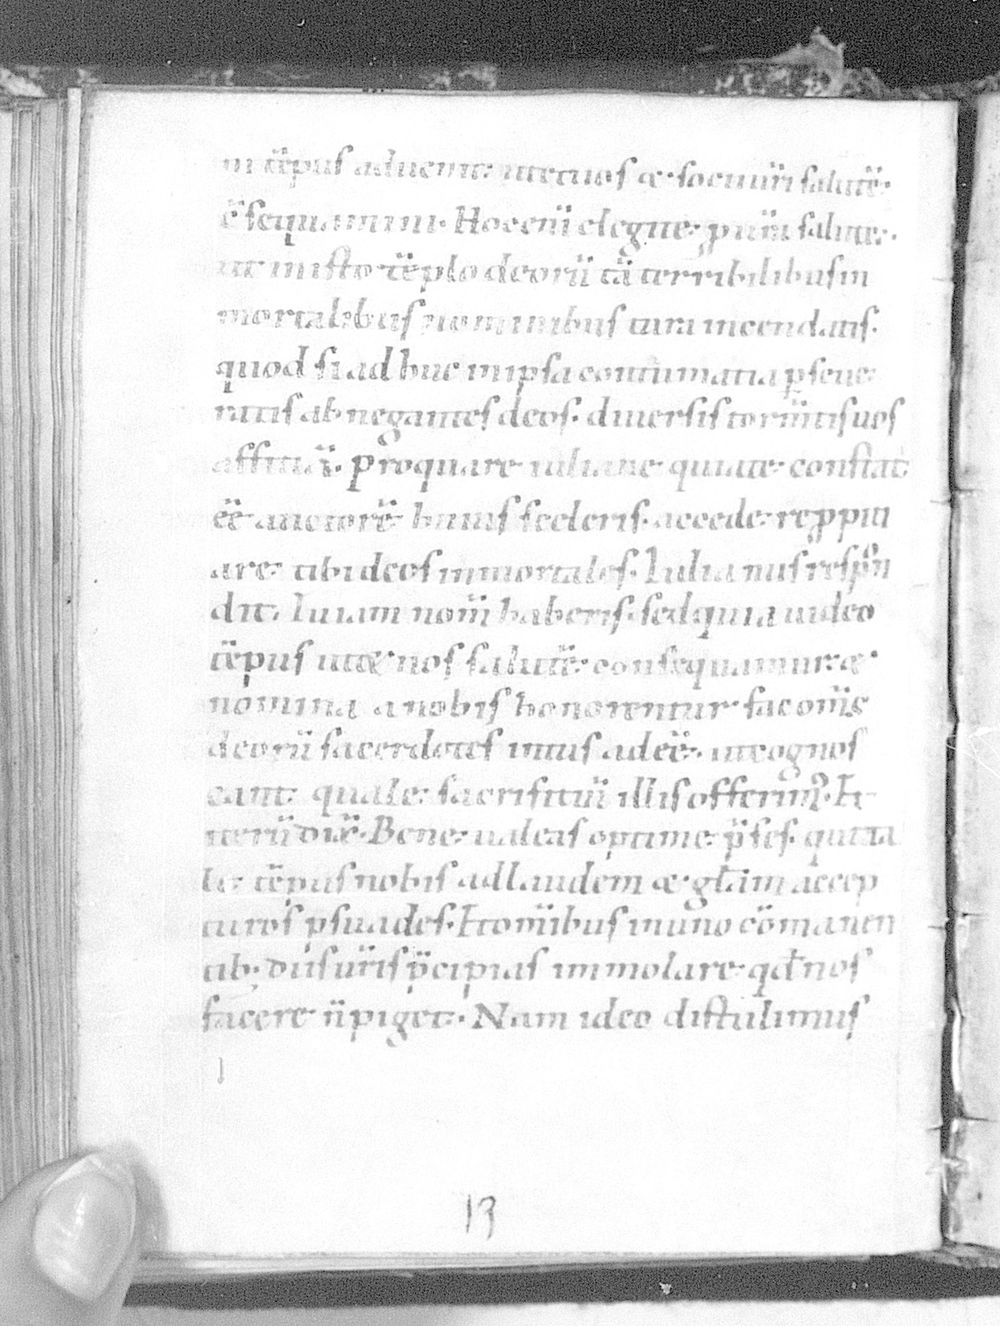 in tēpus aduenit· ut et uos & socii ur̄i salutē·
c̄sequamini· Hoc enī elegit e· p̄ur̄a salute·
ut in isto tēplo deorū tā terribilibus in
mortalibus nominibus tura incendatis·
quod si adhuc in ipsa contumatia pseue
ratis abnegantes deos· diuersis tormītis uos
afficiā· Proquare iuliane quia te constat
eē auctorē huius sceleris· accede· repppiti
are tibi deos inmortales· Iulianus respōn
dit· Iuiam nom̄ haberis· sed quia uideo
tēpus ut & nos salutē consequamur· &
nomina a nobis honorentur fac om̄s
deorū sacerdotes intus adeē· ut cognos
cant quale sacrifitiū illis offerim⁹· Et
iterū dix̄· Bene ualeas optime p̄ses· qui ta
le tēpus nobis ad laudem & gl̄am accep
turos psuades· Et om̄ibus in uno cōmanen
tib; diis ur̄is p̄cipias immolare· qd̄ nos
facere n̄ piget· Nam ideo distulimus
13